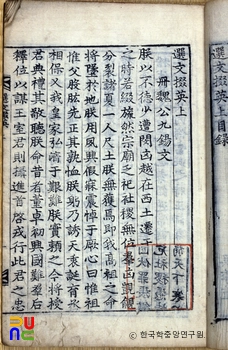 選文掇英上目錄
選文掇英上
冊魏公九錫文
朕以不德少遭閔凶越在西土遷于
之時若綴旒然宗廟乏祀社稷無位羣凶覬覦
分裂諸夏一人尺土朕無獲焉即我高祖之命
將墜於地朕用夙興假寐震悼于厥心曰惟祖
惟父股肱先正其孰恤朕躬乃誘天衷誕育丞
相保乂我皇家弘濟于艱難朕實賴之今將授
君典禮其敬聽朕命昔者董卓初興國難羣后
釋位以謀王室君則攝進首啓戎行此君之忠
한국학중앙연구원